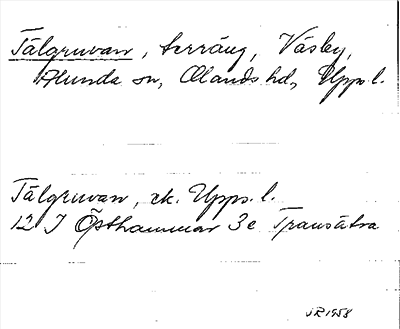 Tälgruvan, terräng, Väsby,
Alunda sn, Olands hd, Upps. l.
Tälgruvan, ek. Upps. l.
12 I Östhammar 3e Transätra
SR 1958